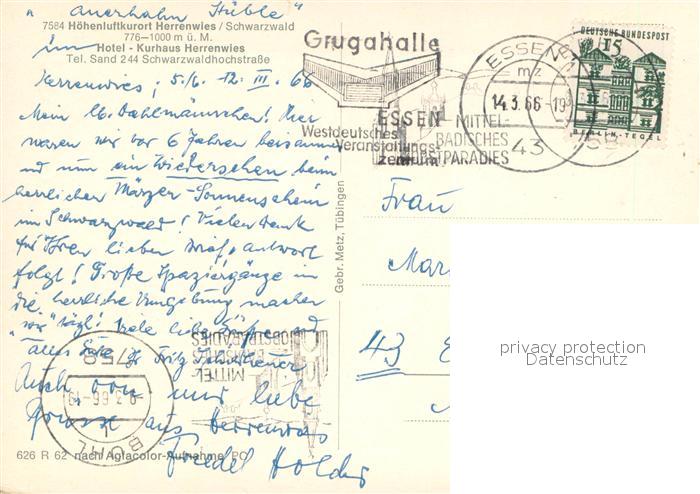 "Auerhahn Stüble"
7584 Höhenluftkurort Herrenwies / Schwarzwald
776–1000 m ü. M.
im
Hotel - Kurhaus Herrenwies
Tel. Sand 244 Schwarzwaldhochstraße
Herrenwies, 5./6.-12. III. 66
Mein lb. Dahlmännchen! Hier
waren wir vor 6 Jahren beisammen
und nun ein Wiedersehen beim
herrlichen Märzen-Sonnenschein
im Schwarzwald! Vielen Dank
für Ihren lieben Brief, Antwort
folgt! Große Spaziergänge in
die herrliche Umgebung machen
"wir" tägl! Viele liebe Grüße und
alles Gute Ihr Fritz
Auch von mir liebe
Grüsse aus Herrenwies
Friedel Holder
626 R 62 nach Agfacolor-Aufnahme PC
Gebr. Metz, Tübingen
Grugahalle
ESSEN
Westdeutsches
Veranstaltungs-
zentrum
MITTEL-
BADISCHES
OBSTPARADIES
ESSEN
mz
14.3.66-19
43
DEUTSCHE BUNDESPOST
15
BERLIN-TEGEL
758
Frau
Mar
43 E
privacy protection
Datenschutz
MITTEL-
BADISCHES
OBSTPARADIES
758
BÜHL